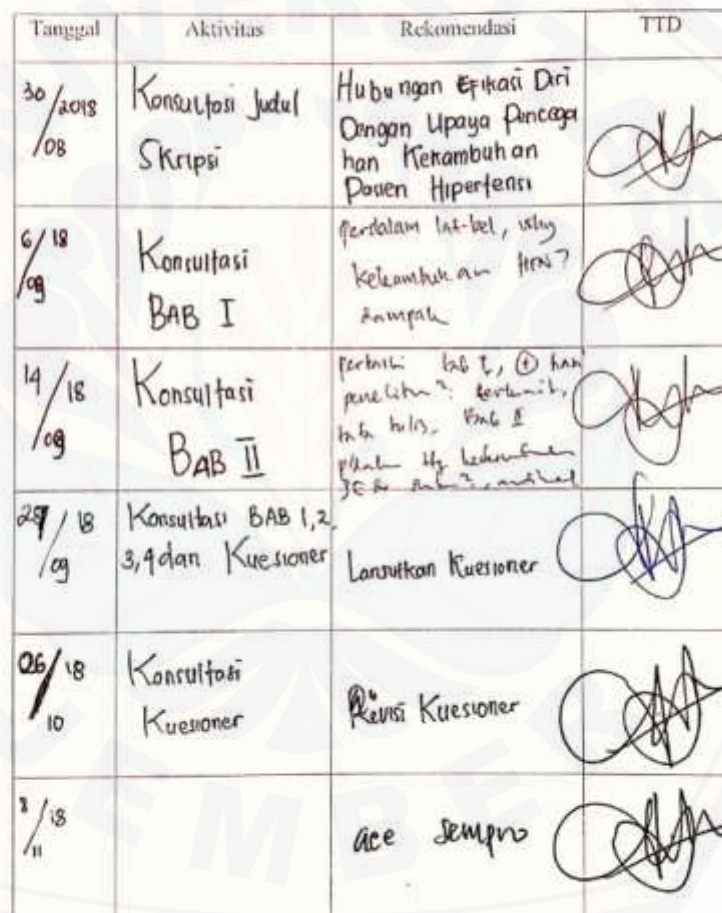 Tanggal Aktivitas Rekomendasi TTD
30/08 2018
Konsultasi Judul
Skripsi
Hubungan Efikasi Diri
Dengan Upaya Pencega
han Kekambuhan
Pasien Hipertensi
6/09 18
Konsultasi
BAB I
perdalam lat-bel, why
kekambuhan HTN?
dampak
14/09 18
Konsultasi
BAB II
perbaiki bab I, + han
tata tulis, Bab II
/09 18
Konsultasi BAB 1,2,
3,4 dan Kuesioner
Lanjutkan Kuesioner
26/10 18
Konsultasi
Kuesioner
Revisi Kuesioner
8/11 18
acc sempro
JEMBER